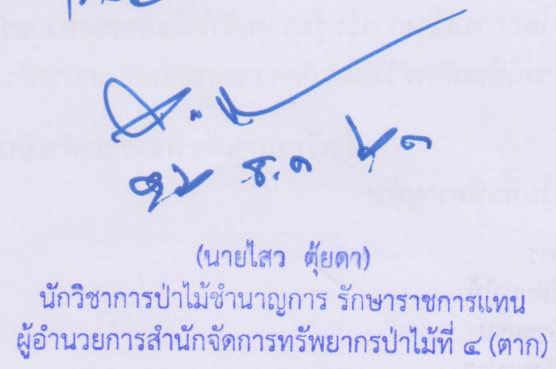 ธ.ค
(นายไสว ตุ้ยดา)
นักวิชาการป่าไม้ชำนาญการ รักษาราชการแทน
ผู้อำนวยการสำนักจัดการทรัพยากรป่าไม้ที่ ๔ (ตาก)